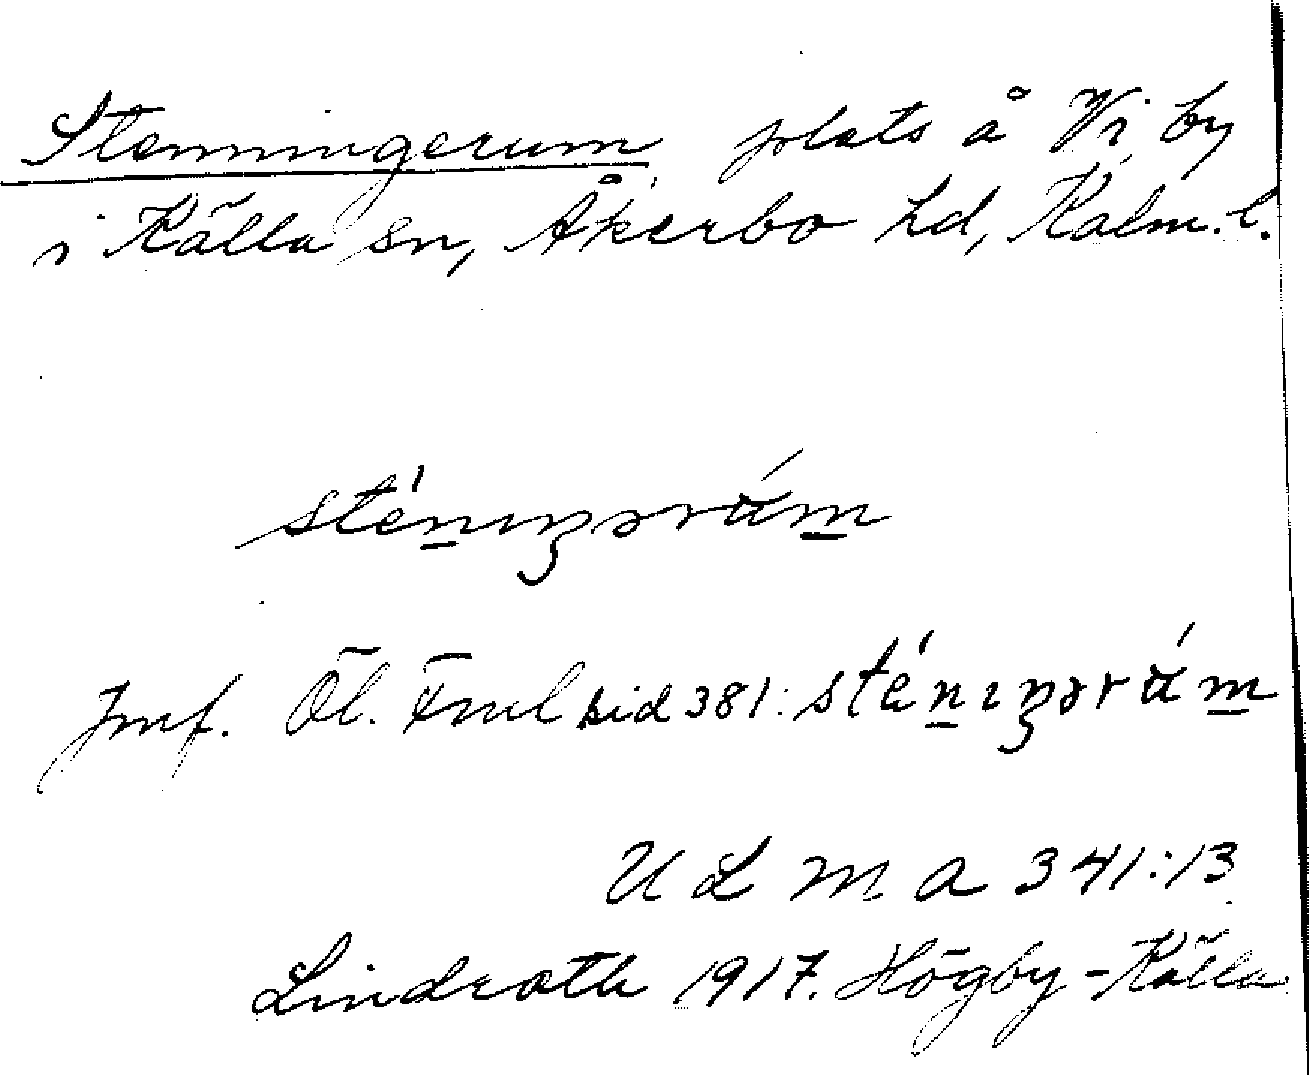 Stenningerum, plats å Vi by
i Källa sn, Åkerbo hd, Kalm. l.
sténıŋərúm
Jmf. Öl. Fml sid 381: sténıŋərúm
U L M A 341:13
Lindroth 1917. Högby-Källa